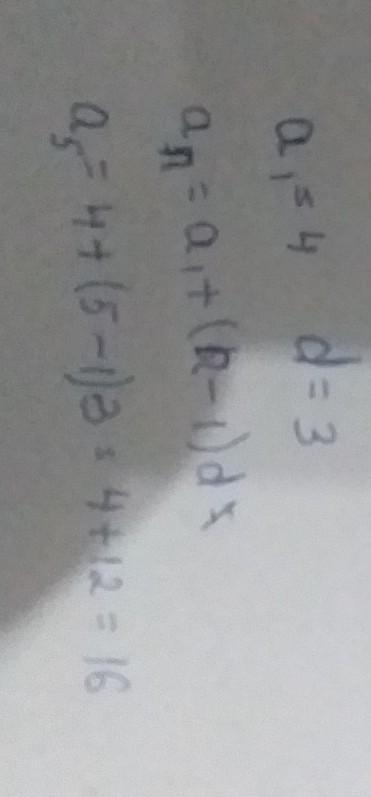 a₁ = 4 d = 3
aₙ = a₁ + (n - 1)d
a₅ = 4 + (5 - 1)3 = 4 + 12 = 16